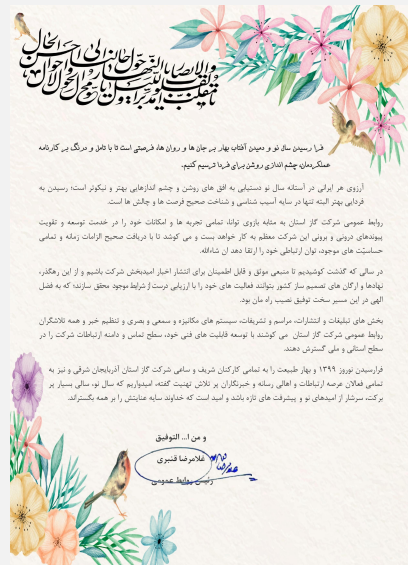 یا مقلب القلوب و الابصار یا مدبر اللیل و النهار یا محول الحول و الاحوال حول حالنا الی احسن الحال
فرا رسیدن سال نو و دمیدن آفتاب بهار بر جان ها و روان ها، فرصتی است تا با تامل و درنگ بر کارنامه
عملکردمان، چشم اندازی روشن برای فردا ترسیم کنیم.
آرزوی هر ایرانی در آستانه سال نو دستیابی به افق های روشن و چشم اندازهایی بهتر و نیکوتر است؛ رسیدن به
فردایی بهتر البته تنها در سایه آسیب شناسی و شناخت صحیح فرصت ها و چالش ها است.
روابط عمومی شرکت گاز استان به مثابه بازوی توانا، تمامی تجربه ها و امکانات خود را در خدمت توسعه و تقویت
پیوندهای درونی و برونی این شرکت معظم به کار خواهد بست و می کوشد تا با دریافت صحیح الزامات زمانه و تمامی
حساسیّت های موجود، توان ارتباطی خود را ارتقا دهد ان شاءالله.
در سالی که گذشت کوشیدیم تا منبعی موثق و قابل اطمینان برای انتشار اخبار امیدبخش شرکت باشیم و از این رهگذر،
نهادها و ارگان های تصمیم ساز کشور بتوانند فعالیت های خود را با ارزیابی درست از شرایط موجود محقق سازند؛ که به فضل
الهی در این مسیر سخت توفیق نصیب راه مان بود.
بخش های تبلیغات و انتشارات، مراسم و تشریفات، سیستم های مکانیزه و سمعی و بصری و تنظیم خبر و همه تلاشگران
روابط عمومی شرکت گاز استان می کوشند با توسعه قابلیت های فنی خود، سطح تماس و دامنه ارتباطات شرکت را در
سطح استانی و ملی گسترش دهند.
فرارسیدن نوروز ۱۳۹۹ و بهار طبیعت را به تمامی کارکنان شریف و ساعی شرکت گاز استان آذربایجان شرقی و نیز به
تمامی فعالان عرصه ارتباطات و اهالی رسانه و خبرنگاران پر تلاش تهنیت گفته، امیدواریم که سال نو، سالی بسیار پر
برکت، سرشار از امیدهای نو و پیشرفت های تازه باشد و امید است که خداوند سایه عنایتش را بر همه بگستراند.
و من ا... التوفیق
غلامرضا قنبری
رئیس روابط عمومی